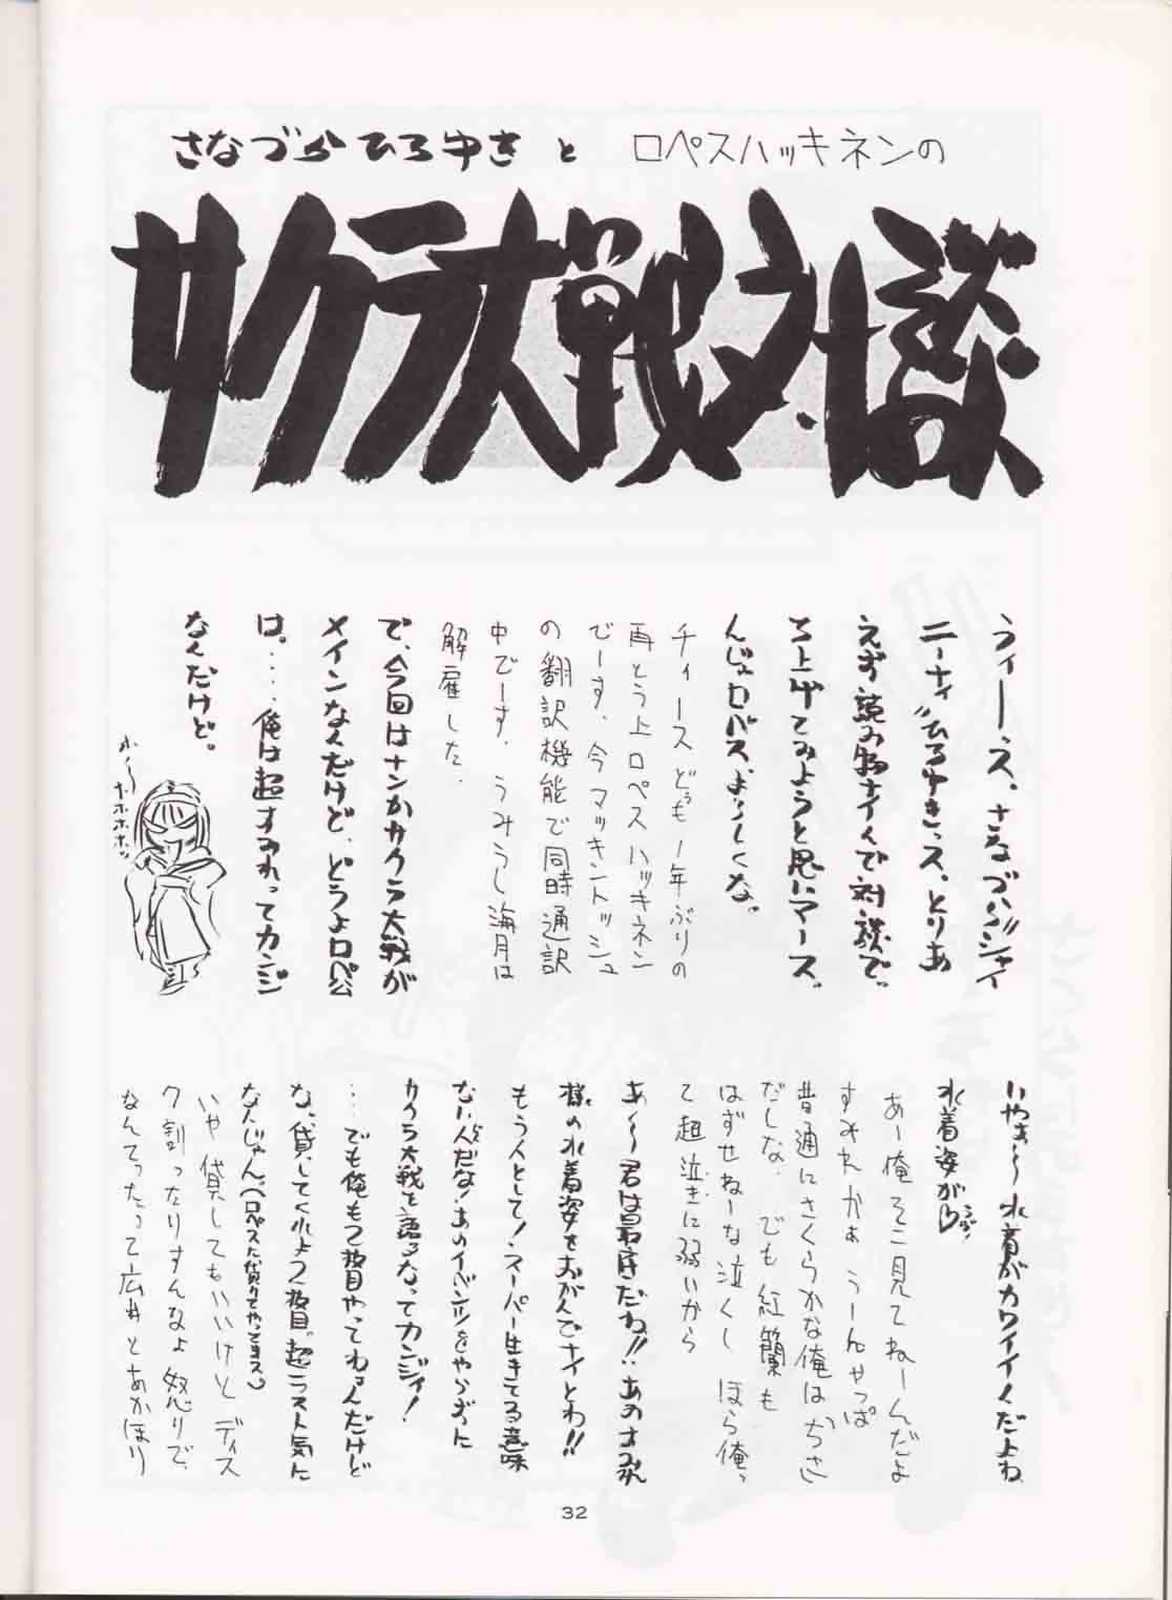 さなづらひろゆきとロペスハッキネンの
サクラ大戦対談
うぃーース。さなづら"シャイ
ニーナイ"ひろゆきっス。とりあ
えず読み物ナイんで対談で。
ち上げてみようと思いマース。
んじゃロバスよろしくな。
チィースどぅも1年ぶりの
再とう上ロペスハッキネン
でーす。今マッキントッシュ
の翻訳機能で同時通訳
中でーす。うみうし海月は
解雇した。
で、今回はナンかサクラ大戦が
メインなんだけど、どうよロペ公
は。・・・・俺は超すみれってカンジ
なんだけど。
ホ〜ホホホホッ
いやぁ〜水着がカワイイんだよね
水着姿が♡
あー俺そこ見てねーんだよ
すみれかぁうーんやっぱ
普通にさくらかな俺はおちさ
だしな。でも紅蘭も
はずせねーな泣くしほら俺っ
て超泣きに弱いから
あ〜〜君は最低だね!!・・あのすみれ
様の水着姿をおがんでナイとわ!!
もう人として!・スーパー生きてる意味
ない人だな!あのイベントをやらずに
サクラ大戦を語るなってカンジィ!
…でも俺も2枚目やってねぇんだけど
な、貸してくれよ2枚目。超ラスト気に
なんじゃん。(ロペスに貸りてやってヨス。)
いや貸してもいいけどディス
ク割ったりすんなよ怒りで、
なんてったって広井とあかほり
32